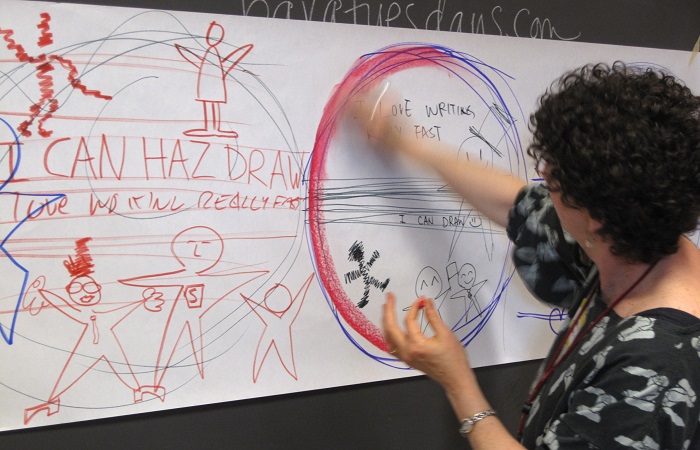 bavatuesdays.com
I CAN HAZ DRAW
LOVE WRITING REALLY FAST
S
OVE WRITING
FAST
I CAN DRAW